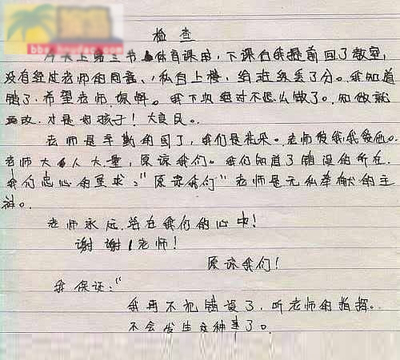 检查
今天上第三节体育课时,下课后我提前回了教室,
没有经过老师的同意,私自上楼,给班级丢了分。我知道
错了,希望老师,谅解。我下次绝对不怎么做了。知做就
要改,才是好孩子!大良民。
老师是辛勤的园丁,我们是花朵。老师爱我,我爱他。
老师大人大量,原谅我们。我们知道了错误的所在,
我们忠心的要求:"原谅我们"老师是无私奉献的主
。
老师永远活在我们的心中!
谢谢!老师!
原谅我们!
我保证:"
我再不犯错误了,听老师的指挥。
不会发生这种事了。